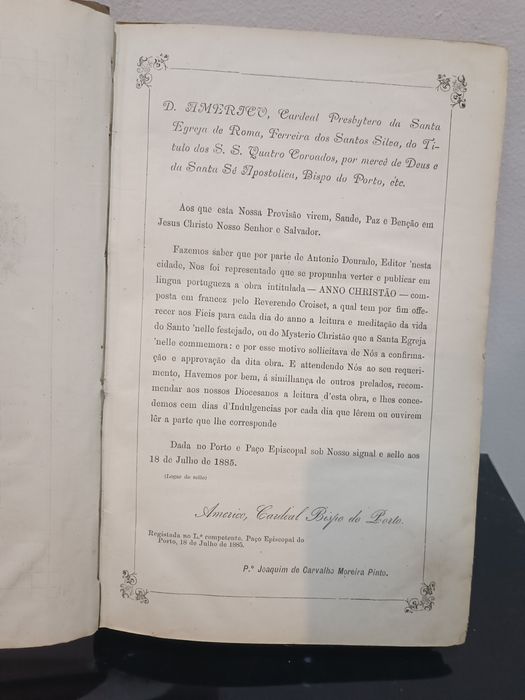 D. AMERICO, Cardeal Presbytero da Santa
Egreja de Roma, Ferreira dos Santos Silva, do Ti-
tulo dos S. S. Quatro Coroados, por mercê de Deus e
da Santa Sé Apostolica, Bispo do Porto, etc.
Aos que esta Nossa Provisão virem, Saude, Paz e Benção em
Jesus Christo Nosso Senhor e Salvador.
Fazemos saber que por parte de Antonio Dourado, Editor 'nesta
cidade, Nos foi representado que se propunha verter e publicar em
lingua portugueza a obra intitulada — ANNO CHRISTÃO — com-
posta em francez pelo Reverendo Croiset, a qual tem por fim offe-
recer aos Fieis para cada dia do anno a leitura e meditação da vida
do Santo 'nelle festejado, ou do Mysterio Christão que a Santa Egreja
'nelle commemora: e por esse motivo sollicitava de Nós a confirma-
ção e approvação da dita obra. E attendendo Nós ao seu requeri-
mento, Havemos por bem, á similhança de outros prelados, recom-
mendar aos nossos Diocesanos a leitura d'esta obra, e lhes conce-
demos cem dias d'Indulgencias por cada dia que lêrem ou ouvirem
lêr a parte que lhe corresponde
Dada no Porto e Paço Episcopal sob Nosso signal e sello aos
18 de Julho de 1885.
(Logar do sello)
Americo, Cardeal Bispo do Porto.
Registada no L.º competente, Paço Episcopal do
Porto, 18 de Julho de 1885.
P.º Joaquim de Carvalho Moreira Pinto.